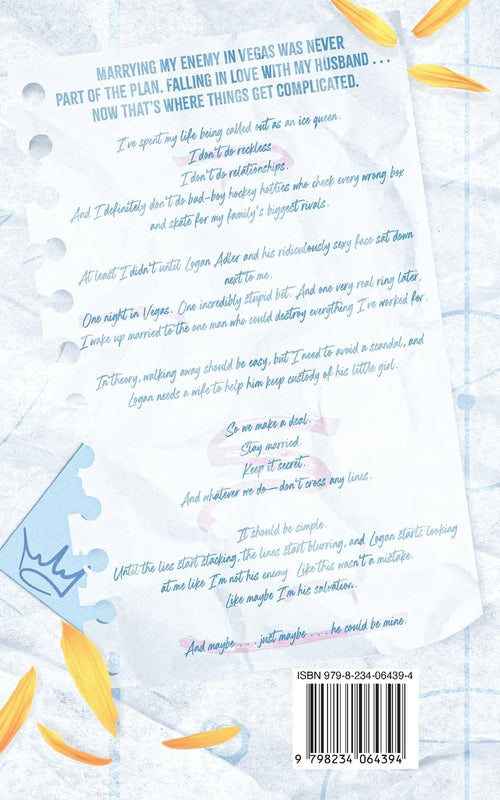 MARRYING MY ENEMY IN VEGAS WAS NEVER
PART OF THE PLAN. FALLING IN LOVE WITH MY HUSBAND . . .
NOW THAT'S WHERE THINGS GET COMPLICATED.
I've spent my life being called out as an ice queen.
I don't do reckless.
I don't do relationships.
And I definitely don't do bad-boy hockey hotties who check every wrong box
and skate for my family's biggest rivals.
At least I didn't until Logan Adler and his ridiculously sexy face sat down
next to me.
One night in Vegas. One incredibly stupid bet. And one very real ring later,
I wake up married to the one man who could destroy everything I've worked for.
In theory, walking away should be easy, but I need to avoid a scandal, and
Logan needs a wife to help him keep custody of his little girl.
So we make a deal.
Stay married.
Keep it secret.
And whatever we do—don't cross any lines.
It should be simple.
Until the lies start stacking, the lines start blurring, and Logan starts looking
at me like I'm not his enemy. Like this wasn't a mistake.
Like maybe I'm his salvation.
And maybe . . . just maybe . . . he could be mine.
ISBN 979-8-234-06439-4
9 798234 064394